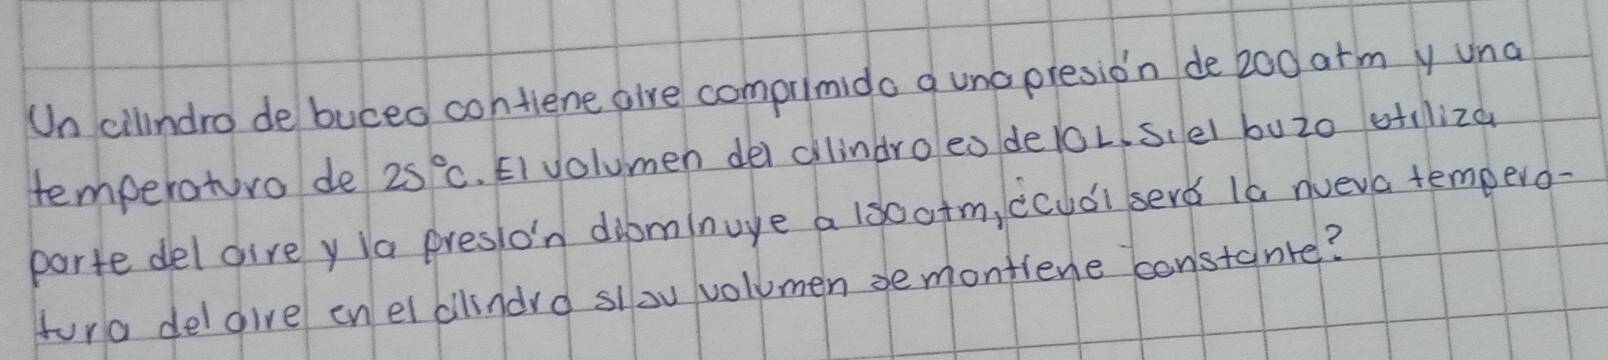 Un cilindro de buceo contiene aire comprimido a una presión de 200 atm y una
temperatura de 25°C. El volumen del cilindro es de 10L. Si el buzo utiliza
parte del aire y la presión disminuye a 150atm, ¿cuál será la nueva tempera-
tura del aire en el cilindro si su volumen se mantiene constante?